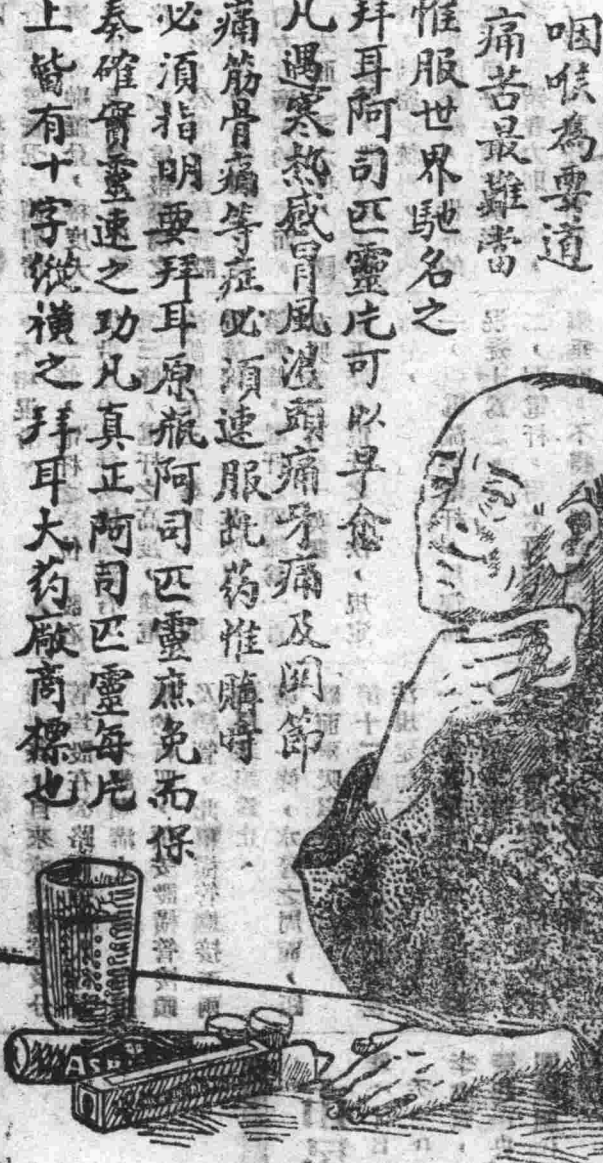 咽喉為要道
痛苦最難當
惟服世界馳名之
拜耳阿司匹靈片可以早愈
凡遇寒熱感冒風濕頭痛牙痛及関節
痛筋骨痛等症必須速服此药惟購時
必須指明要拜耳原瓶阿司匹靈庶免而保
奏確實靈速之功凡真正阿司匹靈每片
上皆有十字縱横之拜耳大药厰商標也
ASP